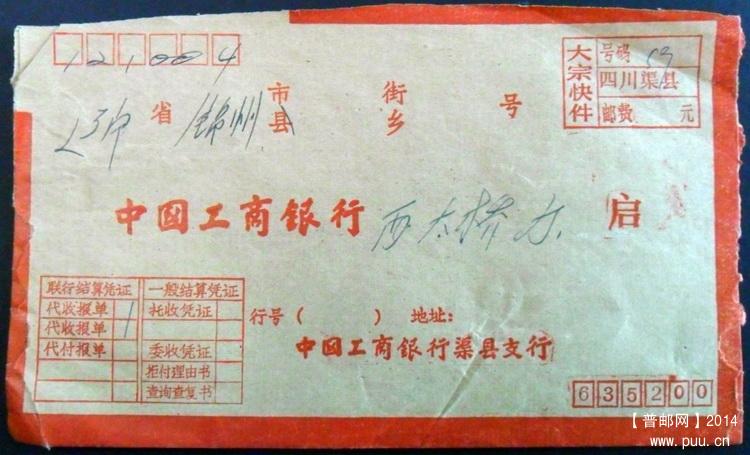 121004
大宗快件
号码 59
四川渠县
邮费 元
辽宁省 锦州 市县 街乡 号
中国工商银行 西大桥办 启
联行结算凭证 一般结算凭证
代收报单 1 托收凭证
代收报单
代付报单 委收凭证
拒付理由书
查询查复书
行号（ ） 地址：
中国工商银行渠县支行
635200
【普邮网】2014
www.puu.cn